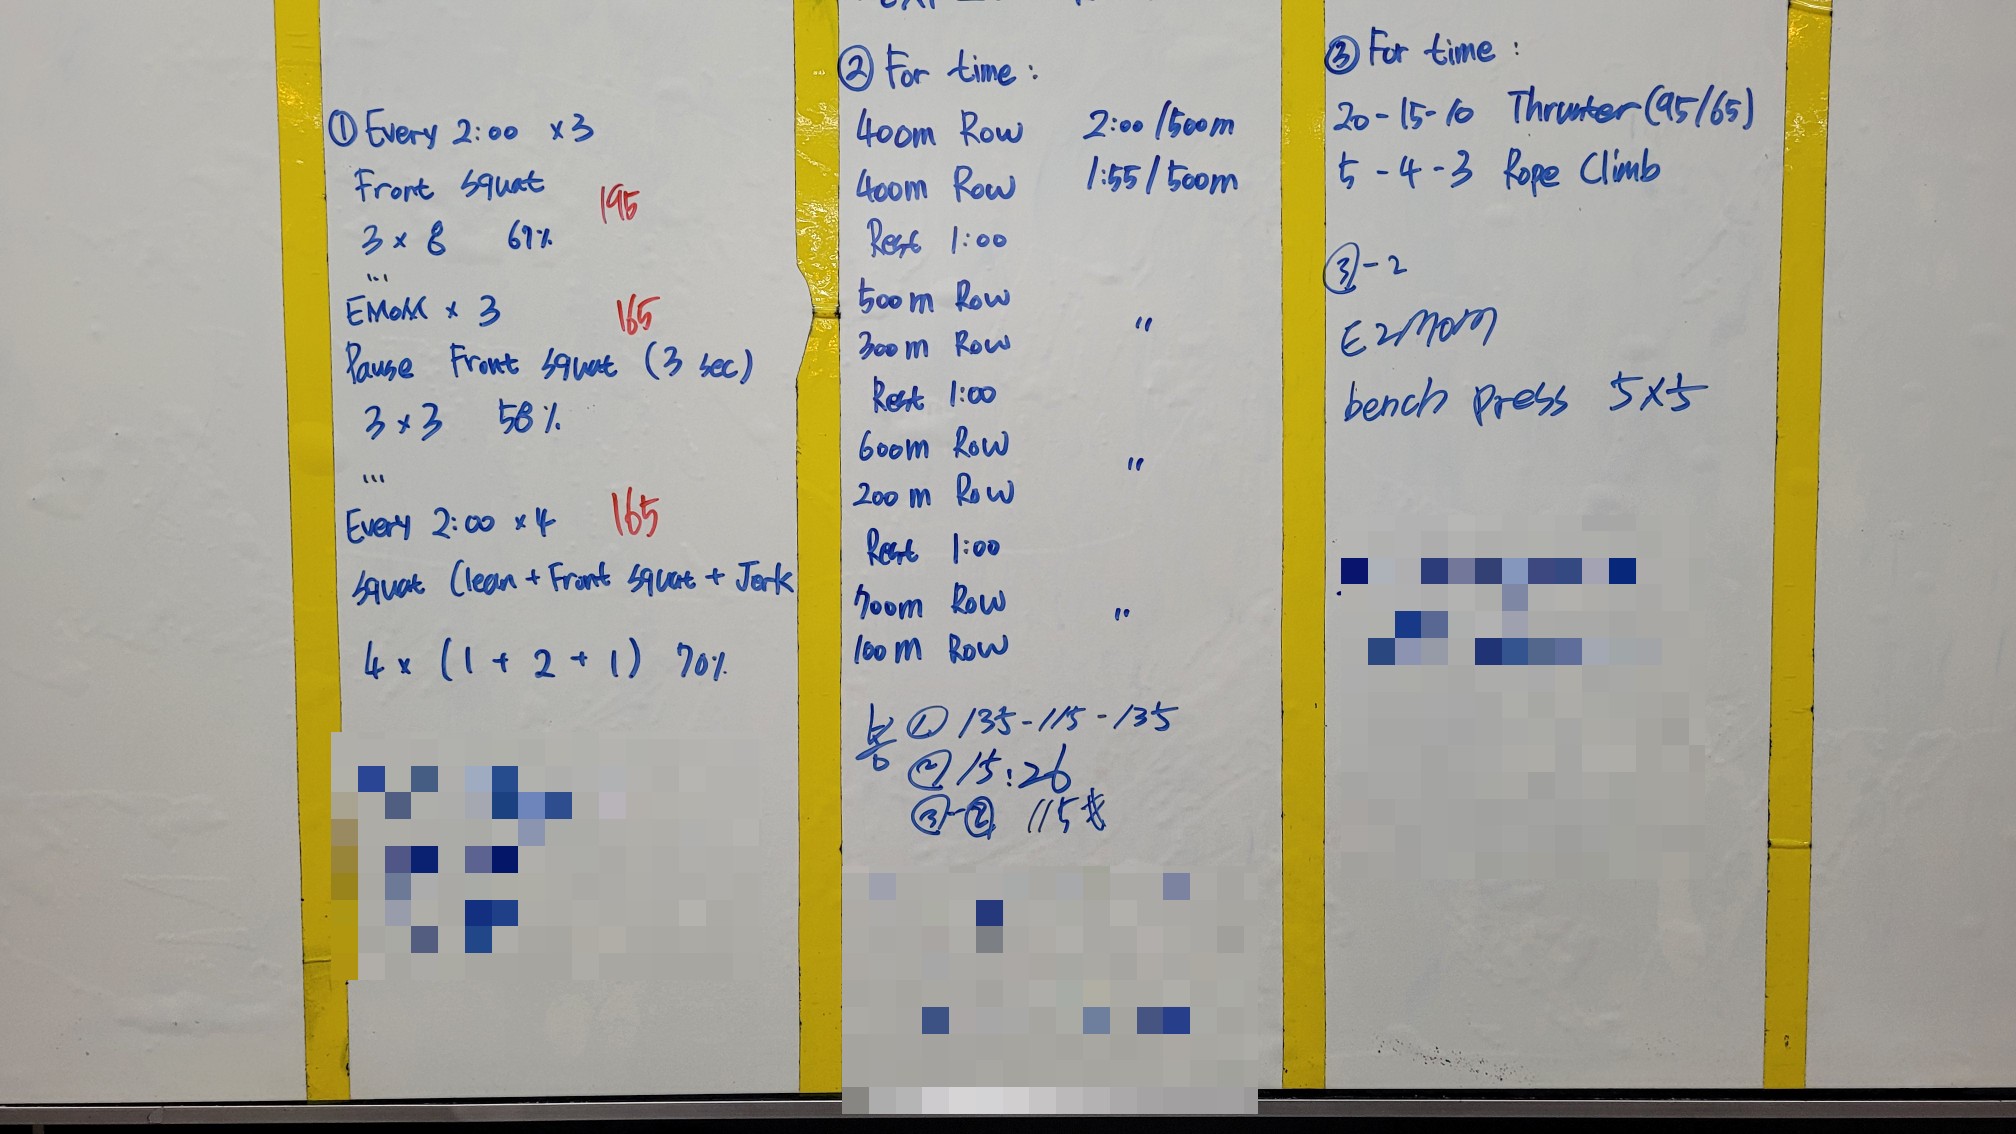 ① Every 2:00 x3
Front squat
195
3 x 8 67%
...
EMOM x 3 165
Pause Front squat (3 sec)
3 x 3 58%
...
Every 2:00 x4 165
squat Clean + Front squat + Jerk
4 x (1 + 2 + 1) 70%
② For time :
400m Row 2:00/500m
400m Row 1:55/500m
Rest 1:00
500m Row
"
300m Row
Rest 1:00
600m Row
"
200m Row
Rest 1:00
700m Row
"
100m Row
① 135-115-135
② 15:26
③-② 115#
③ For time :
20-15-10 Thruster (95/65)
5 - 4 - 3 Rope Climb
③-2
E2MOM
bench press 5x5